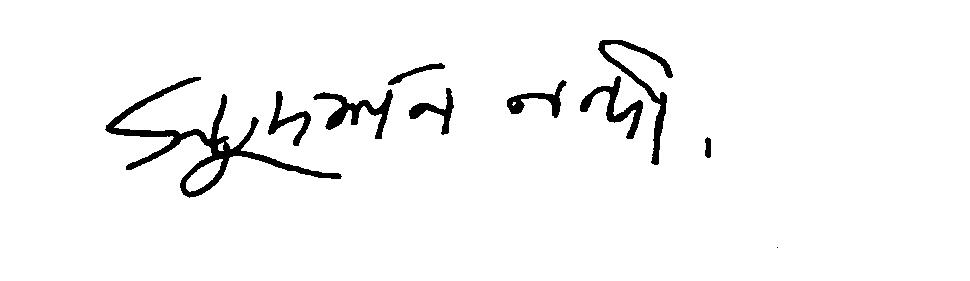 সুদর্শন নন্দী.